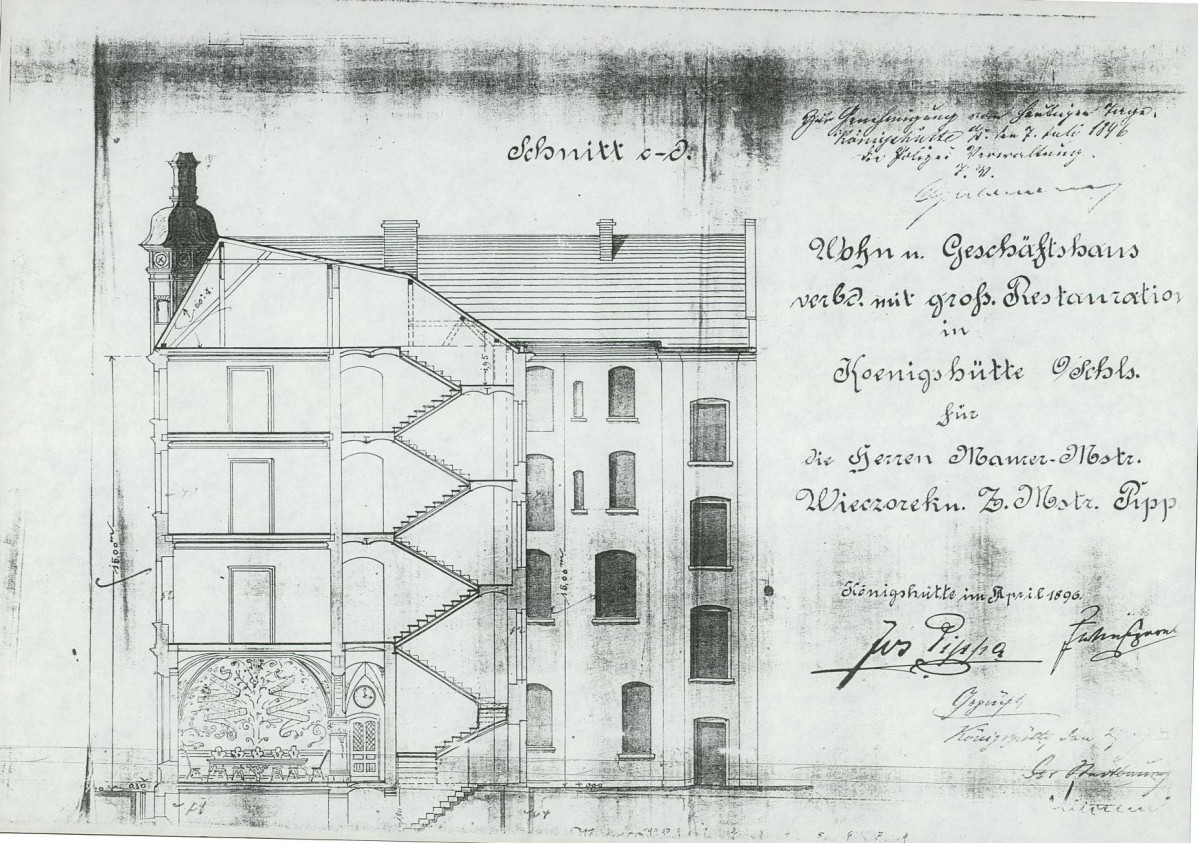 Schnitt c-d.
Zur Genehmigung vom heutigen Tage.
Königshütte d. den 7. Juli 1896
die Polizei Verwaltung.
J. V.
Wohn u. Geschäftshaus
verbd. mit groß. Restauration
in
Koenigshütte O/Schls.
für
die Herren Maurer-Mstr.
Wieczorek u. Z. Mstr. Pipp
Königshütte im April 1896.
Jos Pippa
Geprüft
Königshütte, den
Der Stadtbaurat
18,00 m
18,00 m
1,95
+ 0,00